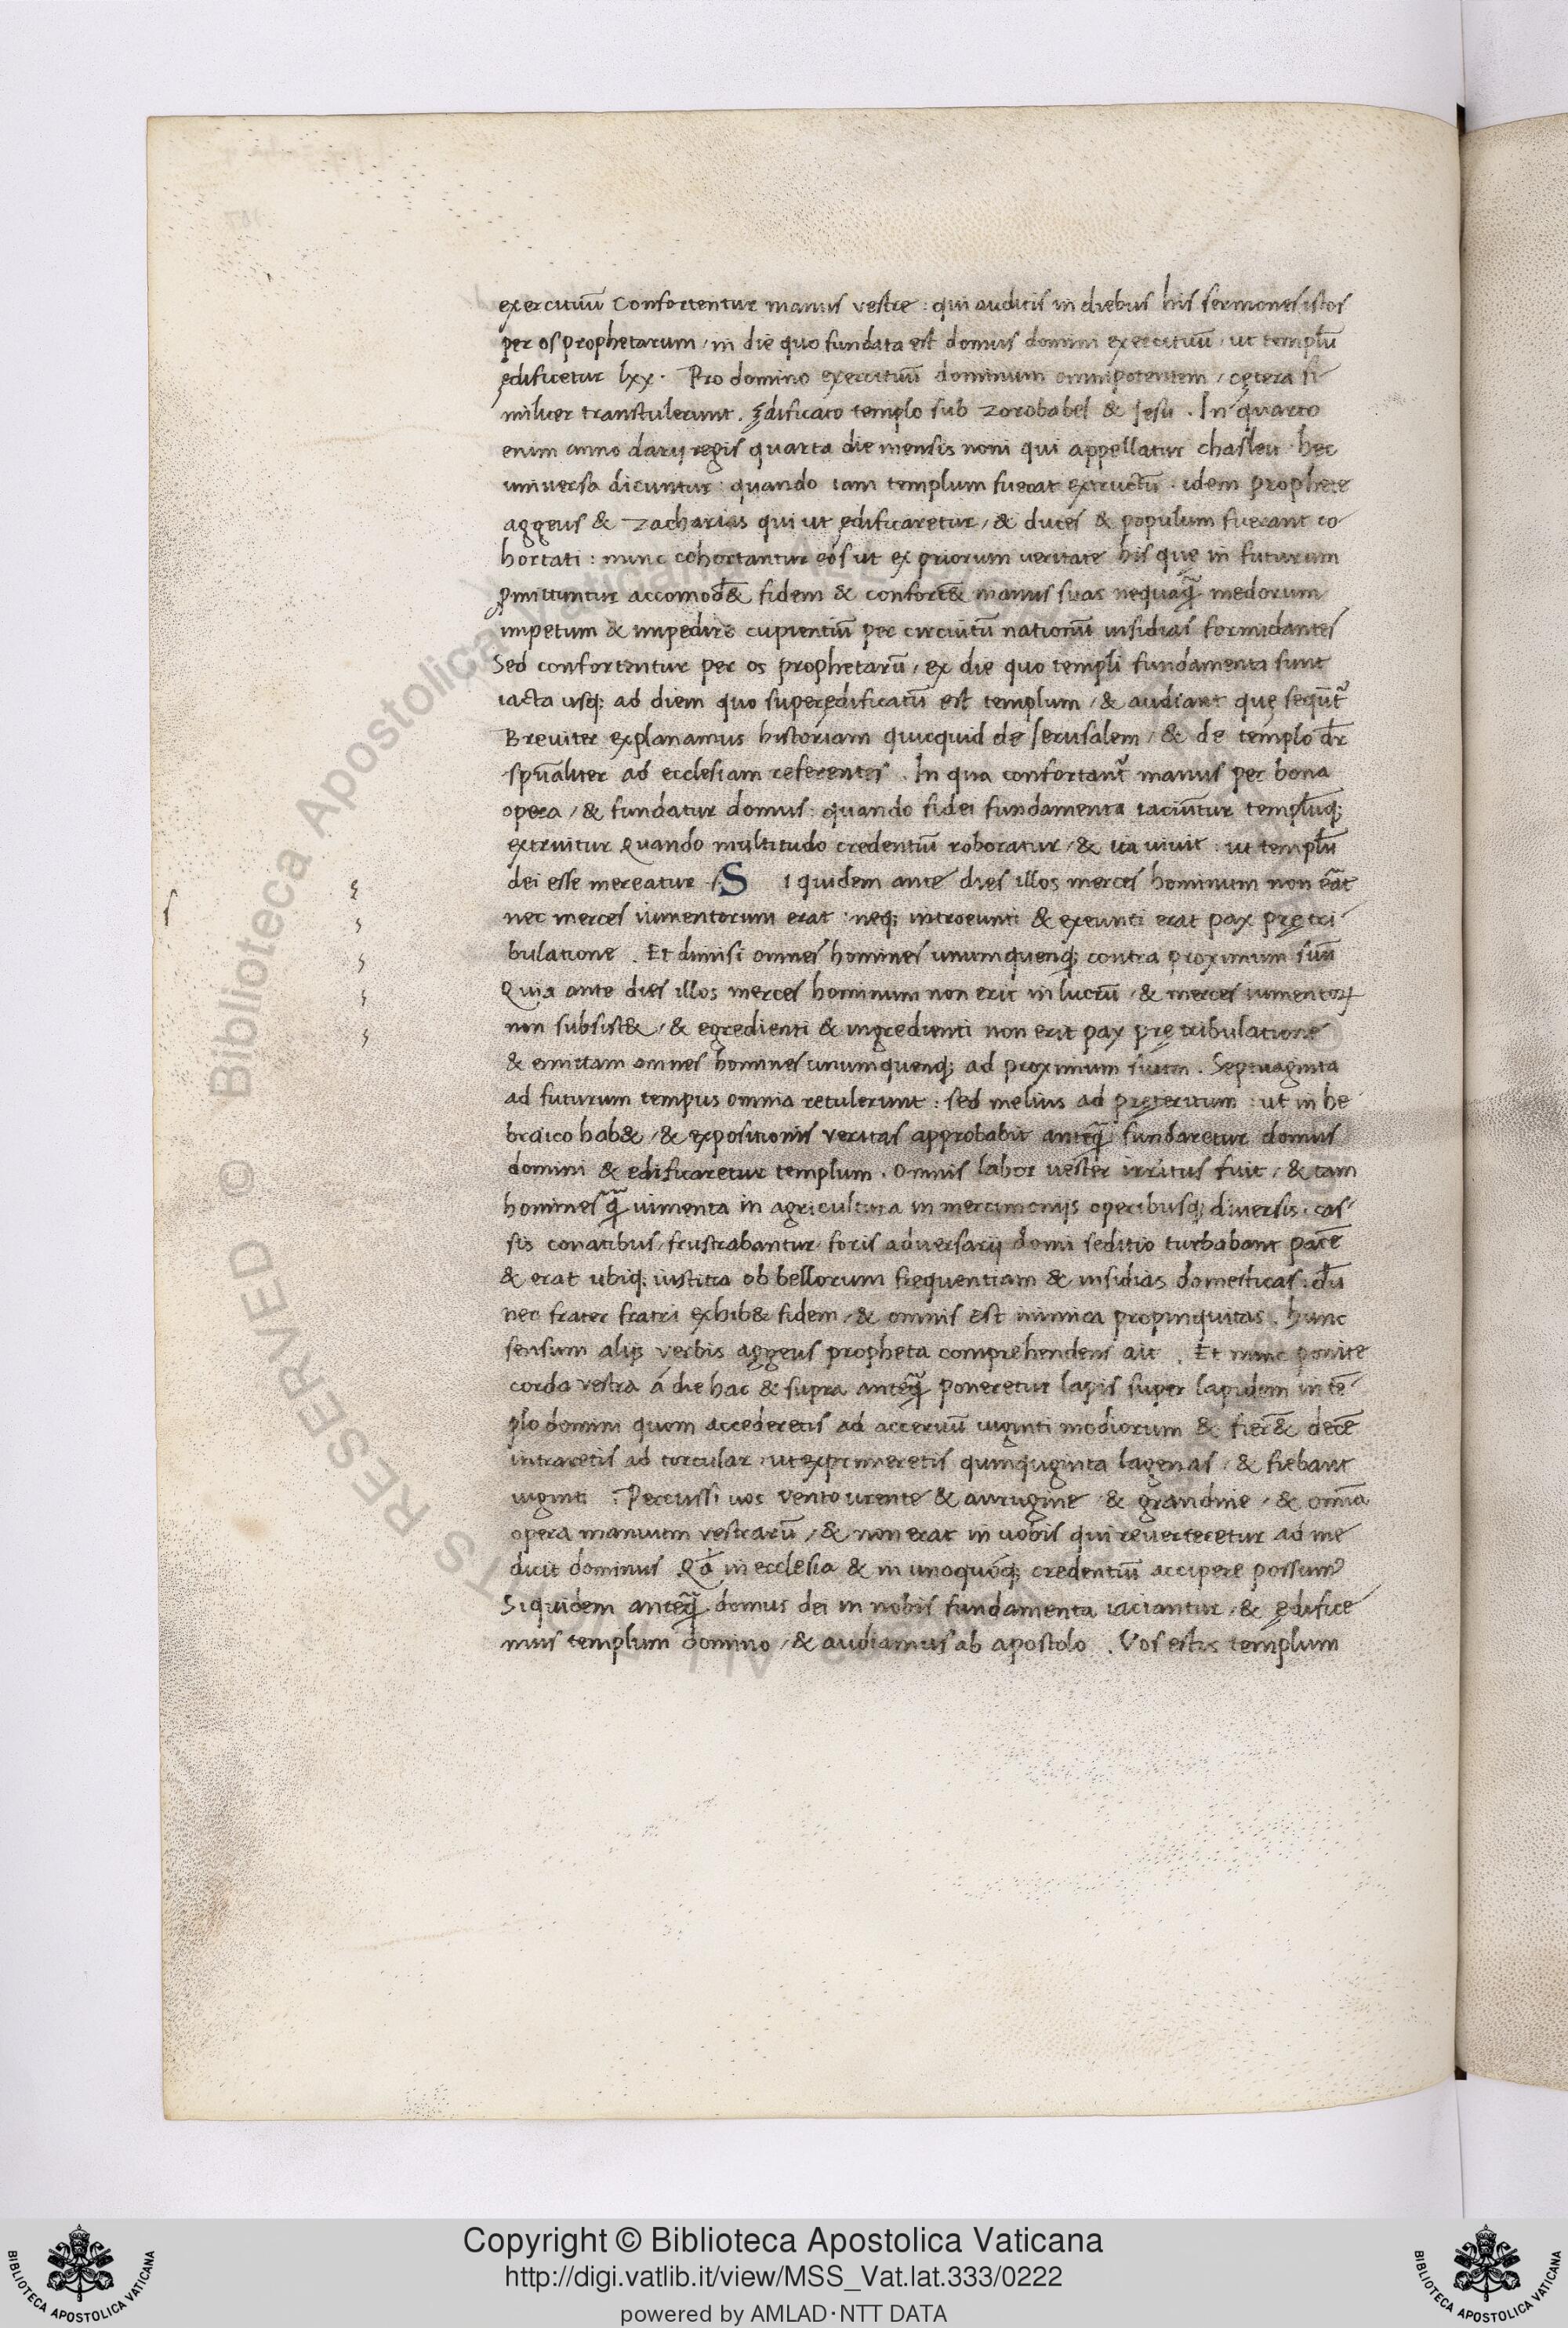 exercituū Confortentur manus vestre : qui auditis in diebus his sermones istos
per os prophetarum / in die quo fundata est domus domini exercituū / ut templū
ędificetur lxx . Pro domino exercituū dominum omnipotentem / cętera si
militer transtulerunt . Ędificato templo sub zorobabel & Jesu . In quarto
enim anno darij regis quarta die mensis noni qui appellatur chasleu hec
universa dicuntur : quando iam templum fuerat extructū . idem prophete
aggeus & zacharias qui ut ędificaretur / & duces & populum fuerant co
hortati : nunc cohortantur eos ut ex priorum veritate his quę in futurum
ꝓmittuntur accomod& fidem & confort& manus suas nequaq̄ medorum
impetum & impedire cupientiū per circuitū nationū insidias formidantes
Sed confortentur per os prophetarū / ex die quo templi fundamenta sunt
iacta usq; ad diem quo superędificatū est templum / & audiant quę sequūt᷑
Breviter explanamus historiam quicquid de Jerusalem / & de templo dr̄
spūaliter ad ecclesiam referentes . In qua confortant᷑ manus per bona
opera / & fundatur domus : quando fidei fundamenta iaciūtur templūq;
extruitur Quando multitudo credentiū roboratur / & ita vivit : ut templū
dei esse mereatur / S i quidem ante dies illos merces hominum non erāt
nec merces iumentorum erat : neq; introeunti & exeunti erat pax prę tri
bulatione . Et dimisi omnes homines unumquenq; contra proximum suū
Quia ante dies illos merces hominum non erit in lucrū / & merces iumentoꝝ
non subsist& / & egredienti & ingredienti non erit pax prę tribulatione
& emittam omnes homines unumquenq; ad proximum suum . Septuaginta
ad futurum tempus omnia retulerunt : sed melius ad pręteritum : ut in he
braico hab& / & expositionis veritas approbabit anteq̄ fundaretur domus
domini & edificaretur templum . omnis labor vester irritus fuit / & tam
homines q̄ iumenta in agricultura in mercimonijs operibusq; diversis . cas
sis conatibus / frustrabantur foris adversarij domi seditio turbabant pacē
& erat ubiq; iustitia ob bellorum frequentiam & insidias domesticas : dū
nec frater fratri exhib& fidem / & omnis est inimica propinquitas . hunc
sensum alijs verbis aggeus propheta comprehendens ait . Et nunc ponite
corda vestra á die hac & supra anteq̄ poneretur lapis super lapidem in tē
plo domini quom accederetis ad accervū viginti modiorum & fier& decē
intraretis ad torcular / ut exprimeretis quinquginta lagenas / & fiebant
viginti . Percussi vos vento urente & aurugine & grandine / & omīa
opera manuum vestrarū / & non erat in vobis qui reverteretur ad me
dicit dominus Qđ in ecclesia & in unoquoq; credentiū accipere possum᷒
Siquidem anteq̄ domus dei in nobis fundamenta iaciantur / & ędifice
mus templum domino / & audiamus ab apostolo . Vos estis templum
BIBLIOTECA APOSTOLICA VATICANA
Copyright © Biblioteca Apostolica Vaticana
http://digi.vatlib.it/view/MSS_Vat.lat.333/0222
powered by AMLAD·NTT DATA
BIBLIOTECA APOSTOLICA VATICANA